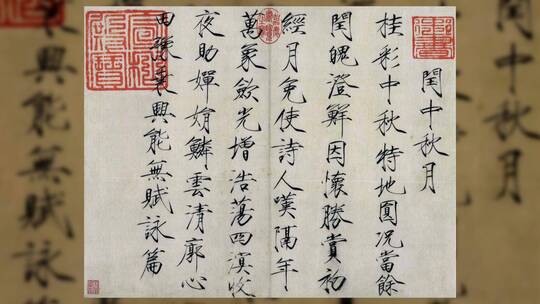 閏中秋月
閏中秋月
桂彩中秋特地圓況當餘
閏魄澄鮮因懷勝賞初
經月免使詩人嘆隔年
萬象歛光增浩蕩四溟收
夜助嬋娟鱗雲清廓心
田豫乘興能無賦詠篇
興能無賦詠篇